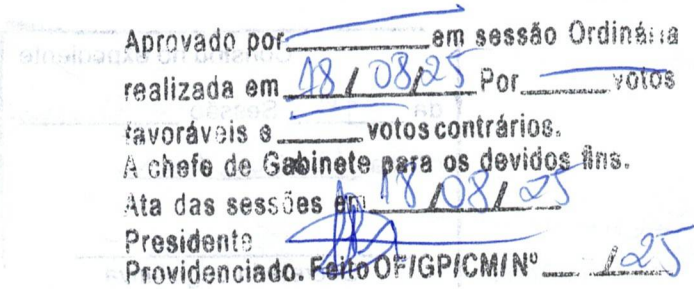 Aprovado por ________ em sessão Ordinária
realizada em 18/08/25 Por ______ votos
favoráveis e _____ votos contrários.
A chefe de Gabinete para os devidos fins.
Ata das sessões em 18/08/25
Presidente
Providenciado. Feito OF/GP/CM/Nº ____/25